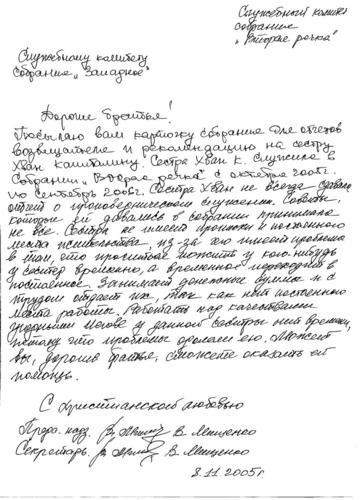 Служебный комитет
собрание
„Вторая речка"
Служебному комитету
собрание „Западное"
Дорогие братья!
Посылаю вам карточку собрание для отчетов
возвещателя и рекомендацию на сестру
Хван Капиталину. Сестра Хван К. служила в
Собрании „Вторая речка" с октября 2001г.
по сентябрь 2005г. Сестра Хван не всегда сдавала
отчет о проповедническом служении. Советы,
которые ей давались в собрании принимала
не все. Сестра не имеет прописки и постоянного
места жительства, из за чего имеет проблемы
в том, что просится пожить у кого-нибудь
у сестер временно, а временное переходит в
постоянное. Занимает денежные суммы и с
трудом отдает их, так как нет постоянного
места работы. Работать над качествами
у данной сестры нет времени,
потому что проблемы одолели ее. Может
вы, дорогие братья, сможете оказать ей
помощь.
С христианской любовью
Пред. надз. В. Мищенко
Секретарь В. Мищенко
8.11.2005г